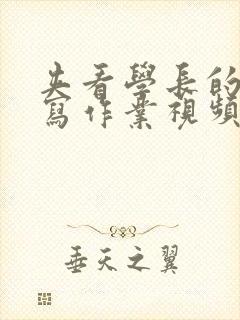 夹看學長的
寫作業視頻
垂天之翼